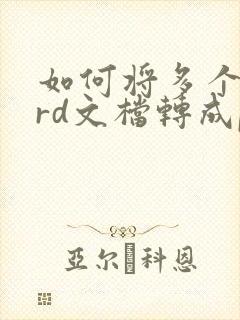 如何将多个
rd文檔轉成
亞尔 科恩